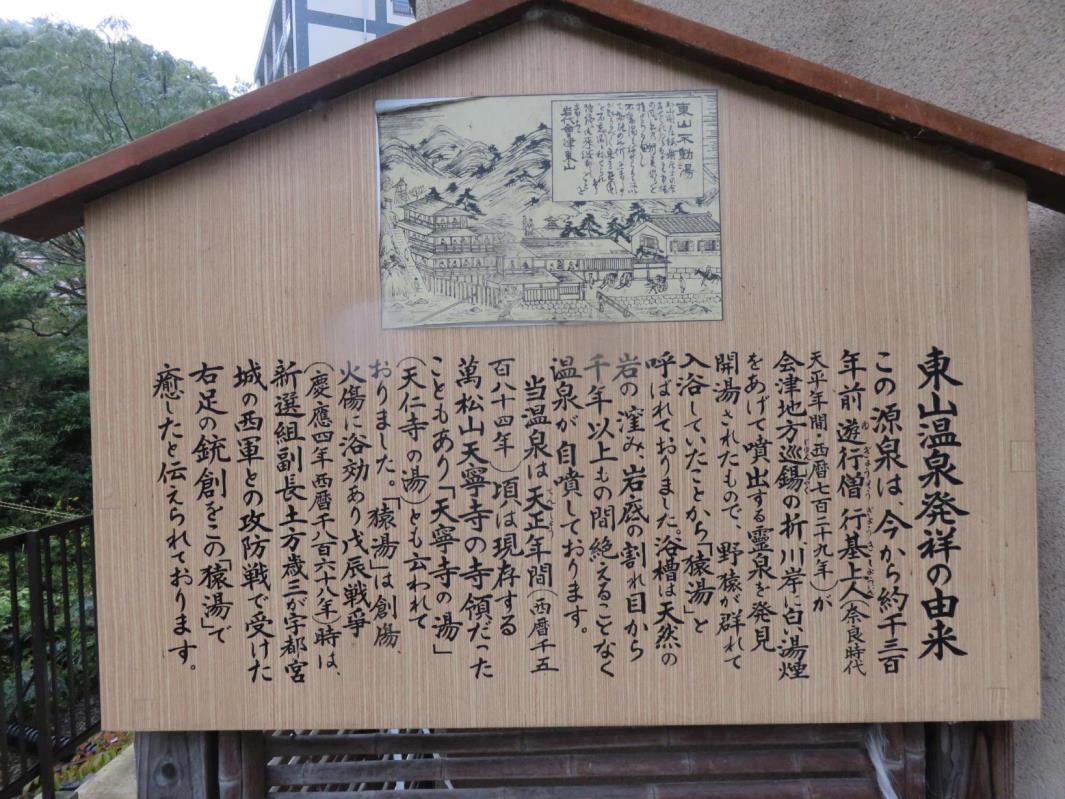 東山温泉発祥の由来
この源泉は、今から約千三百
年前遊行僧行基上人(奈良時代
天平年間・西暦七百二十九年)が
会津地方巡錫の折川岸に白湯煙
をあげて噴出する靈泉を発見
開湯されたもので、野猿が群れて
入浴していたことから「猿湯」と
呼ばれておりました。浴槽は天然の
岩の窪み、岩底の割れ目から
千年以上もの間絶えることなく
温泉が自噴しております。
当温泉は天正年間(西暦千五
百八十四年)頃は現存する
萬松山天寧寺の寺領だった
こともあり「天寧寺の湯」
(天仁寺の湯)とも云われて
おりました。「猿湯」は創傷、
火傷に浴効あり戊辰戦爭
(慶應四年西暦千八百六十八年)時は、
新選組副長土方歳三が宇都宮
城の西軍との攻防戦で受けた
右足の銃創をこの「猿湯」で
癒したと伝えられております。
東山不動湯
岩代會津東山